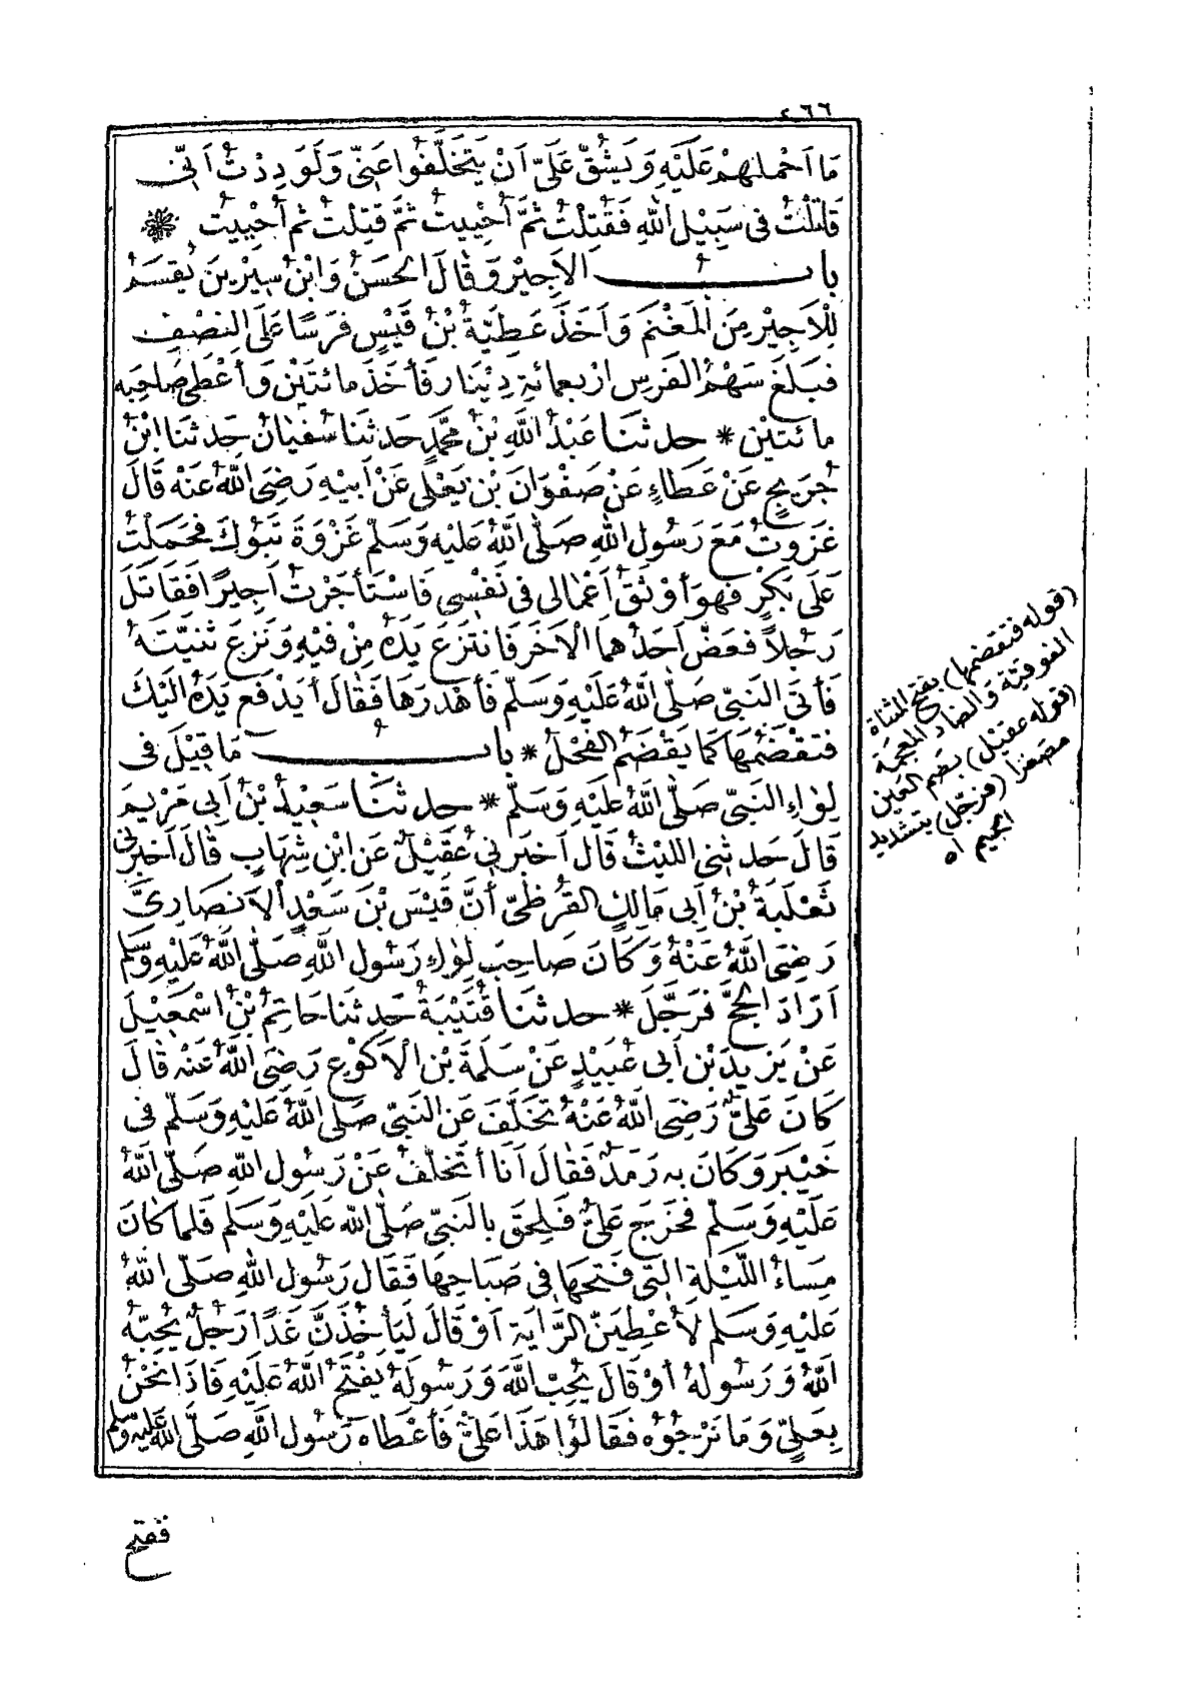 ٤٦٦
مَا أَحْمِلُهُمْ عَلَيْهِ وَيَشُقُّ عَلَيَّ أَنْ يَتَخَلَّفُوا عَنِّي وَلَوَدِدْتُ أَنِّي
قَاتَلْتُ فِي سَبِيلِ اللهِ فَقُتِلْتُ ثُمَّ أُحْيِيتُ ثُمَّ قُتِلْتُ ثُمَّ أُحْيِيتُ *
بابُ الأَجِيْرِ وَقَالَ الحَسَنُ وَابْنُ سِيرِينَ يُقْسَمُ
لِلْأَجِيْرِ مِنَ المَغْنَمِ وَأَخَذَ عَطِيَّةُ بْنُ قَيْسٍ فَرَسًا عَلَى النِصْفِ
فَبَلَغَ سَهْمُ الفَرَسِ أرْبعمائةِ دِيْنَارٍ فَأَخَذَ مائتَيْنِ وَأَعْطَى صَاحِبَه
مائتَيْنِ * حدثنَا عَبْدُ اللَّهِ بْنُ مُحَمَّدٍ حَدثنَا سُفْيَانُ حَدثنَا ابْنُ
جُرَيجٍ عَنْ عَطَاءٍ عَنْ صَفْوَانَ بْنِ يَعْلَى عَنْ أَبِيهِ رَضِيَ اللَّهُ عَنْهُ قَالَ
غَزَوتُ مَعَ رَسُولِ اللهِ صَلَّى اللَّهُ عَلَيْهِ وَسَلَّمَ غَزْوَةَ تَبُوكَ فَحَمَلْتُ
عَلَى بَكْرٍ فَهُوَ أَوْثَقُ أَعْمَالي فِي نَفْسِي فَاسْتَأْجَرْتُ أَجِيرًا فَقَاتَلَ
رَجُلاً فَعَضَّ أَحَدُهُمَا الآخَرَ فَانْتَزَعَ يَدَهُ مِنْ فِيْهِ وَنَزَعَ ثَنِيَّتَهُ
فَأَتَى النَبِيَّ صَلَّى اللَّهُ عَلَيْهِ وَسَلَّمَ فَأَهْدَرَهَا فَقَالَ أَيَدْفَعُ يَدَهُ إلَيْكَ
فَتَقْضَمُهَا كَمَا يَقْضَمُ الفَحْلُ * بابُ مَا قِيْلَ فِي
لِوَاءِ النَبِيِّ صَلَّى اللَّهُ عَلَيْهِ وَسَلَّمَ * حدثنَا سَعِيْدُ بْنُ أَبِي مَرْيمَ
قَالَ حَدثنِي الليْثُ قَالَ أَخْبَرَنِي عُقَيْلٌ عَنِ ابْنِ شِهَابٍ قَالَ أَخْبَرَنِي
ثَعْلَبَةُ بْنُ أَبِي مَالِكٍ القُرَظِيُّ أَنَّ قَيْسَ بْنَ سَعْدٍ الأَنصَارِيَّ
رَضِيَ اللَّهُ عَنْهُ وَكَانَ صَاحِبَ لِوَاءِ رَسُولِ اللَّهِ صَلَّى اللَّهُ عَلَيْهِ وَسَلَّمَ
أَرَادَ الحَجَّ فَرَجَّلَ * حدثنَا قُتَيْبَةُ حَدثنَا حَاتِمُ بْنُ اسْمَعِيْلَ
عَنْ يَزِيدَ بْنِ أَبِي عُبَيْدٍ عَنْ سَلَمَةَ بْنِ الأَكْوَعِ رَضِيَ اللَّهُ عَنْهُ قَالَ
كَانَ عَلِيٌّ رَضِيَ اللَّهُ عَنْهُ تَخَلَّفَ عَنِ النَبِيِّ صَلَّى اللَّهُ عَلَيْهِ وَسَلَّمَ فِي
خَيْبَرَ وَكَانَ بِه رَمَدٌ فَقَالَ أَنَا أَتَخَلَّفُ عَنْ رَسُولِ اللَّهِ صَلَّى اللَّهُ
عَلَيْهِ وَسَلَّمَ فَخَرَجَ عَلِيٌّ فَلَحِقَ بِالنَبِيِّ صَلَّى الله عَلَيْهِ وَسَلَّمَ فَلَمَا كَانَ
مَسَاءُ اللَّيْلَةِ التِي فَتَحَهَا فِي صَبَاحِهَا فَقَالَ رَسُولُ اللهِ صَلَّى اللَّهُ
عَلَيْهِ وَسَلَّمَ لَأُعْطِيَنَّ الرَّايَةَ أَوْ قَالَ لَيَأْخُذَنَّ غَدًا رَجُلٌ يُحِبُّهُ
اللَّهُ وَرَسُولُهُ أَوْ قَالَ يُحِبُّ اللَّهَ وَرَسُولَهُ يَفْتَحُ اللَّهُ عَلَيْهِ فَإذَا نَحْنُ
بِعَلِيٍّ وَمَا نَرْجُوْهُ فَقَالُوا هَذَا عَلِيٌّ فَأَعْطَاه رَسُولُ اللَّهِ صَلَّى اللَّهُ عَلَيْهِ وَسَلَّمَ
(قوله فتقضمها) بفتح المثناة
الفوقية والضاد المعجمة
(قوله عقيل) بضم العين
مصغرا (فرجّل) بتشديد
الجيم اه
ففتح